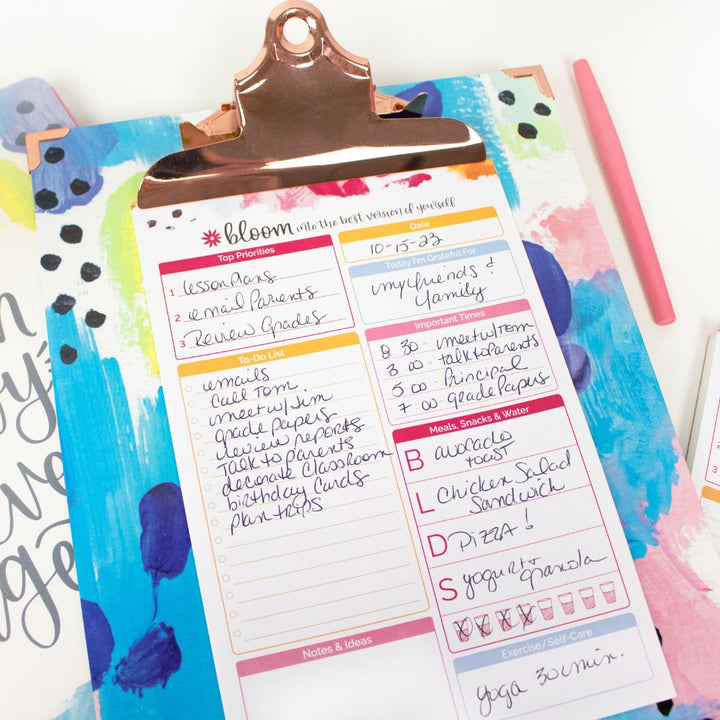 bloom into the best version of yourself
Top Priorities
1 lesson Plans
2 email Parents
3 Review Grades
To-Do List
emails
Call Tom
meet w/Jim
grade Papers
review reports
Talk to parents
decorate Classroom
birthday Cards
plan trips
Notes & Ideas
Date
10-15-23
Today I'm Grateful For
my friends &
family
Important Times
8 30 - meet w/Tom
3 00 - talk to Parents
5 00 - Principal
7 00 - grade Papers
Meals, Snacks & Water
B avocado
toast
L Chicken Salad
Sandwich
D PIZZA!
S yogurt +
granola
Exercise/Self-Care
yoga 30 min.